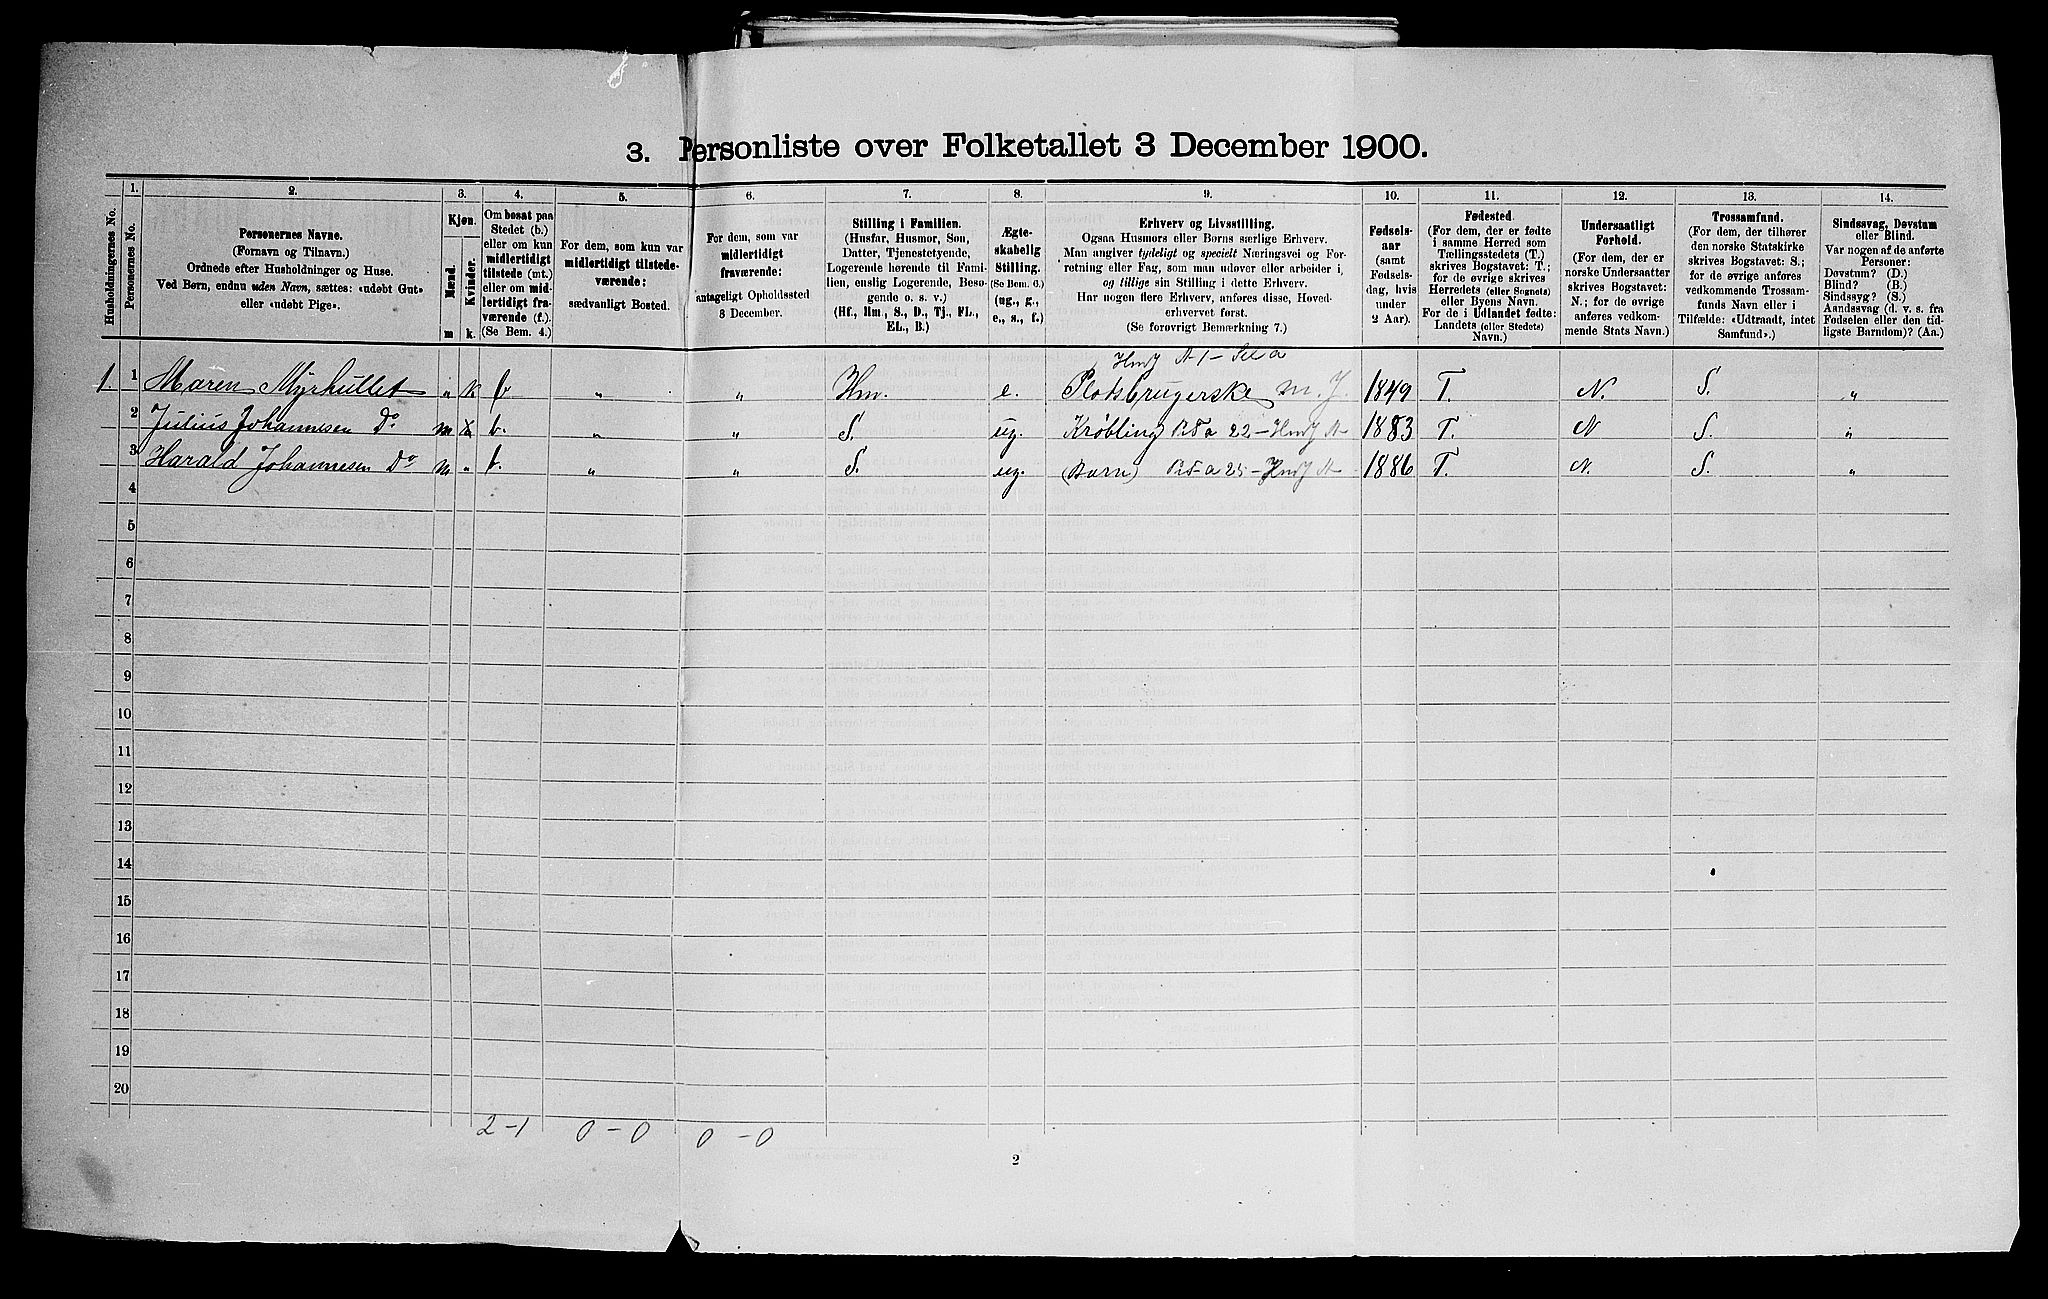 3. Personliste over Folketallet 3 December 1900.
Husholdningernes No.
1.
Personernes No.
2.
Personernes Navne.
(Fornavn og Tilnavn.)
Ordnede efter Husholdninger og Huse.
Ved Børn, endnu uden Navn, sættes: «udøbt Gut»
eller «udøbt Pige».
3.
Kjøn.
Mænd.
Kvinder.
m
k.
4.
Om bosat paa
Stedet (b.)
eller om kun
midlertidigt
tilstede (mt.)
eller om mid-
lertidigt fra-
værende (f.).
(Se Bem. 4.)
5.
For dem, som kun var
midlertidigt tilstede-
værende:
sædvanligt Bosted.
6.
For dem, som var
midlertidigt
fraværende:
antageligt Opholdssted
3 December.
7.
Stilling i Familien.
(Husfar, Husmor, Søn,
Datter, Tjenestetyende,
Logerende hørende til Fami-
lien, enslig Logerende, Besø-
gende o. s. v.)
(Hf., Hm., S., D., Tj., FL.,
EL., B.)
8.
Ægte-
skabelig
Stilling.
(Se Bem. 6.)
(ug., g.,
e., s., f.)
9.
Erhverv og Livsstilling.
Ogsaa Husmors eller Børns særlige Erhverv.
Man angiver tydeligt og specielt Næringsvei og For-
retning eller Fag, som man udøver eller arbeider i,
og tillige sin Stilling i dette Erhverv.
Har nogen flere Erhverv, anføres disse, Hoved-
erhvervet først.
(Se forøvrigt Bemærkning 7.)
10.
Fødsels-
aar
(samt
Fødsels-
dag, hvis
under
2 Aar).
11.
Fødested.
(For dem, der er fødte
i samme Herred som
Tællingsstedets (T.)
skrives Bogstavet: T.;
for de øvrige skrives
Herredets (eller Sognets)
eller Byens Navn.
For de i Udlandet fødte:
Landets (eller Stedets)
Navn.)
12.
Undersaatligt
Forhold.
(For dem, der er
norske Undersaatter
skrives Bogstavet:
N.; for de øvrige
anføres vedkom-
mende Stats Navn.)
13.
Trossamfund.
(For dem, der tilhører
den norske Statskirke
skrives Bogstavet: S.;
for de øvrige anføres
vedkommende Trossam-
funds Navn eller i
Tilfælde: «Udtraadt, intet
Samfund».)
14.
Sindssvag, Døvstum
eller Blind.
Var nogen af de anførte
Personer:
Døvstum? (D.)
Blind? (B.)
Sindssyg? (S.)
Aandssvag (d. v. s. fra
Fødselen eller den tid-
ligste Barndom)? (Aa.)
1. 1 Maren Myrhullet " k b " " Hm. e. Pladsbrugerske m. J. 1849 T. N. S. "
2 Julius Johannesen Do m b. " " S. ug. 1883 T. N S. "
3 Harald Johannesen Do m " b. " " S. ug. (Barn) 1886 T. N. S. "
4
5
6
7
8
9
10
11
12
13
14
15
16
17
18
19
20
2-1 0-0 0-0
2